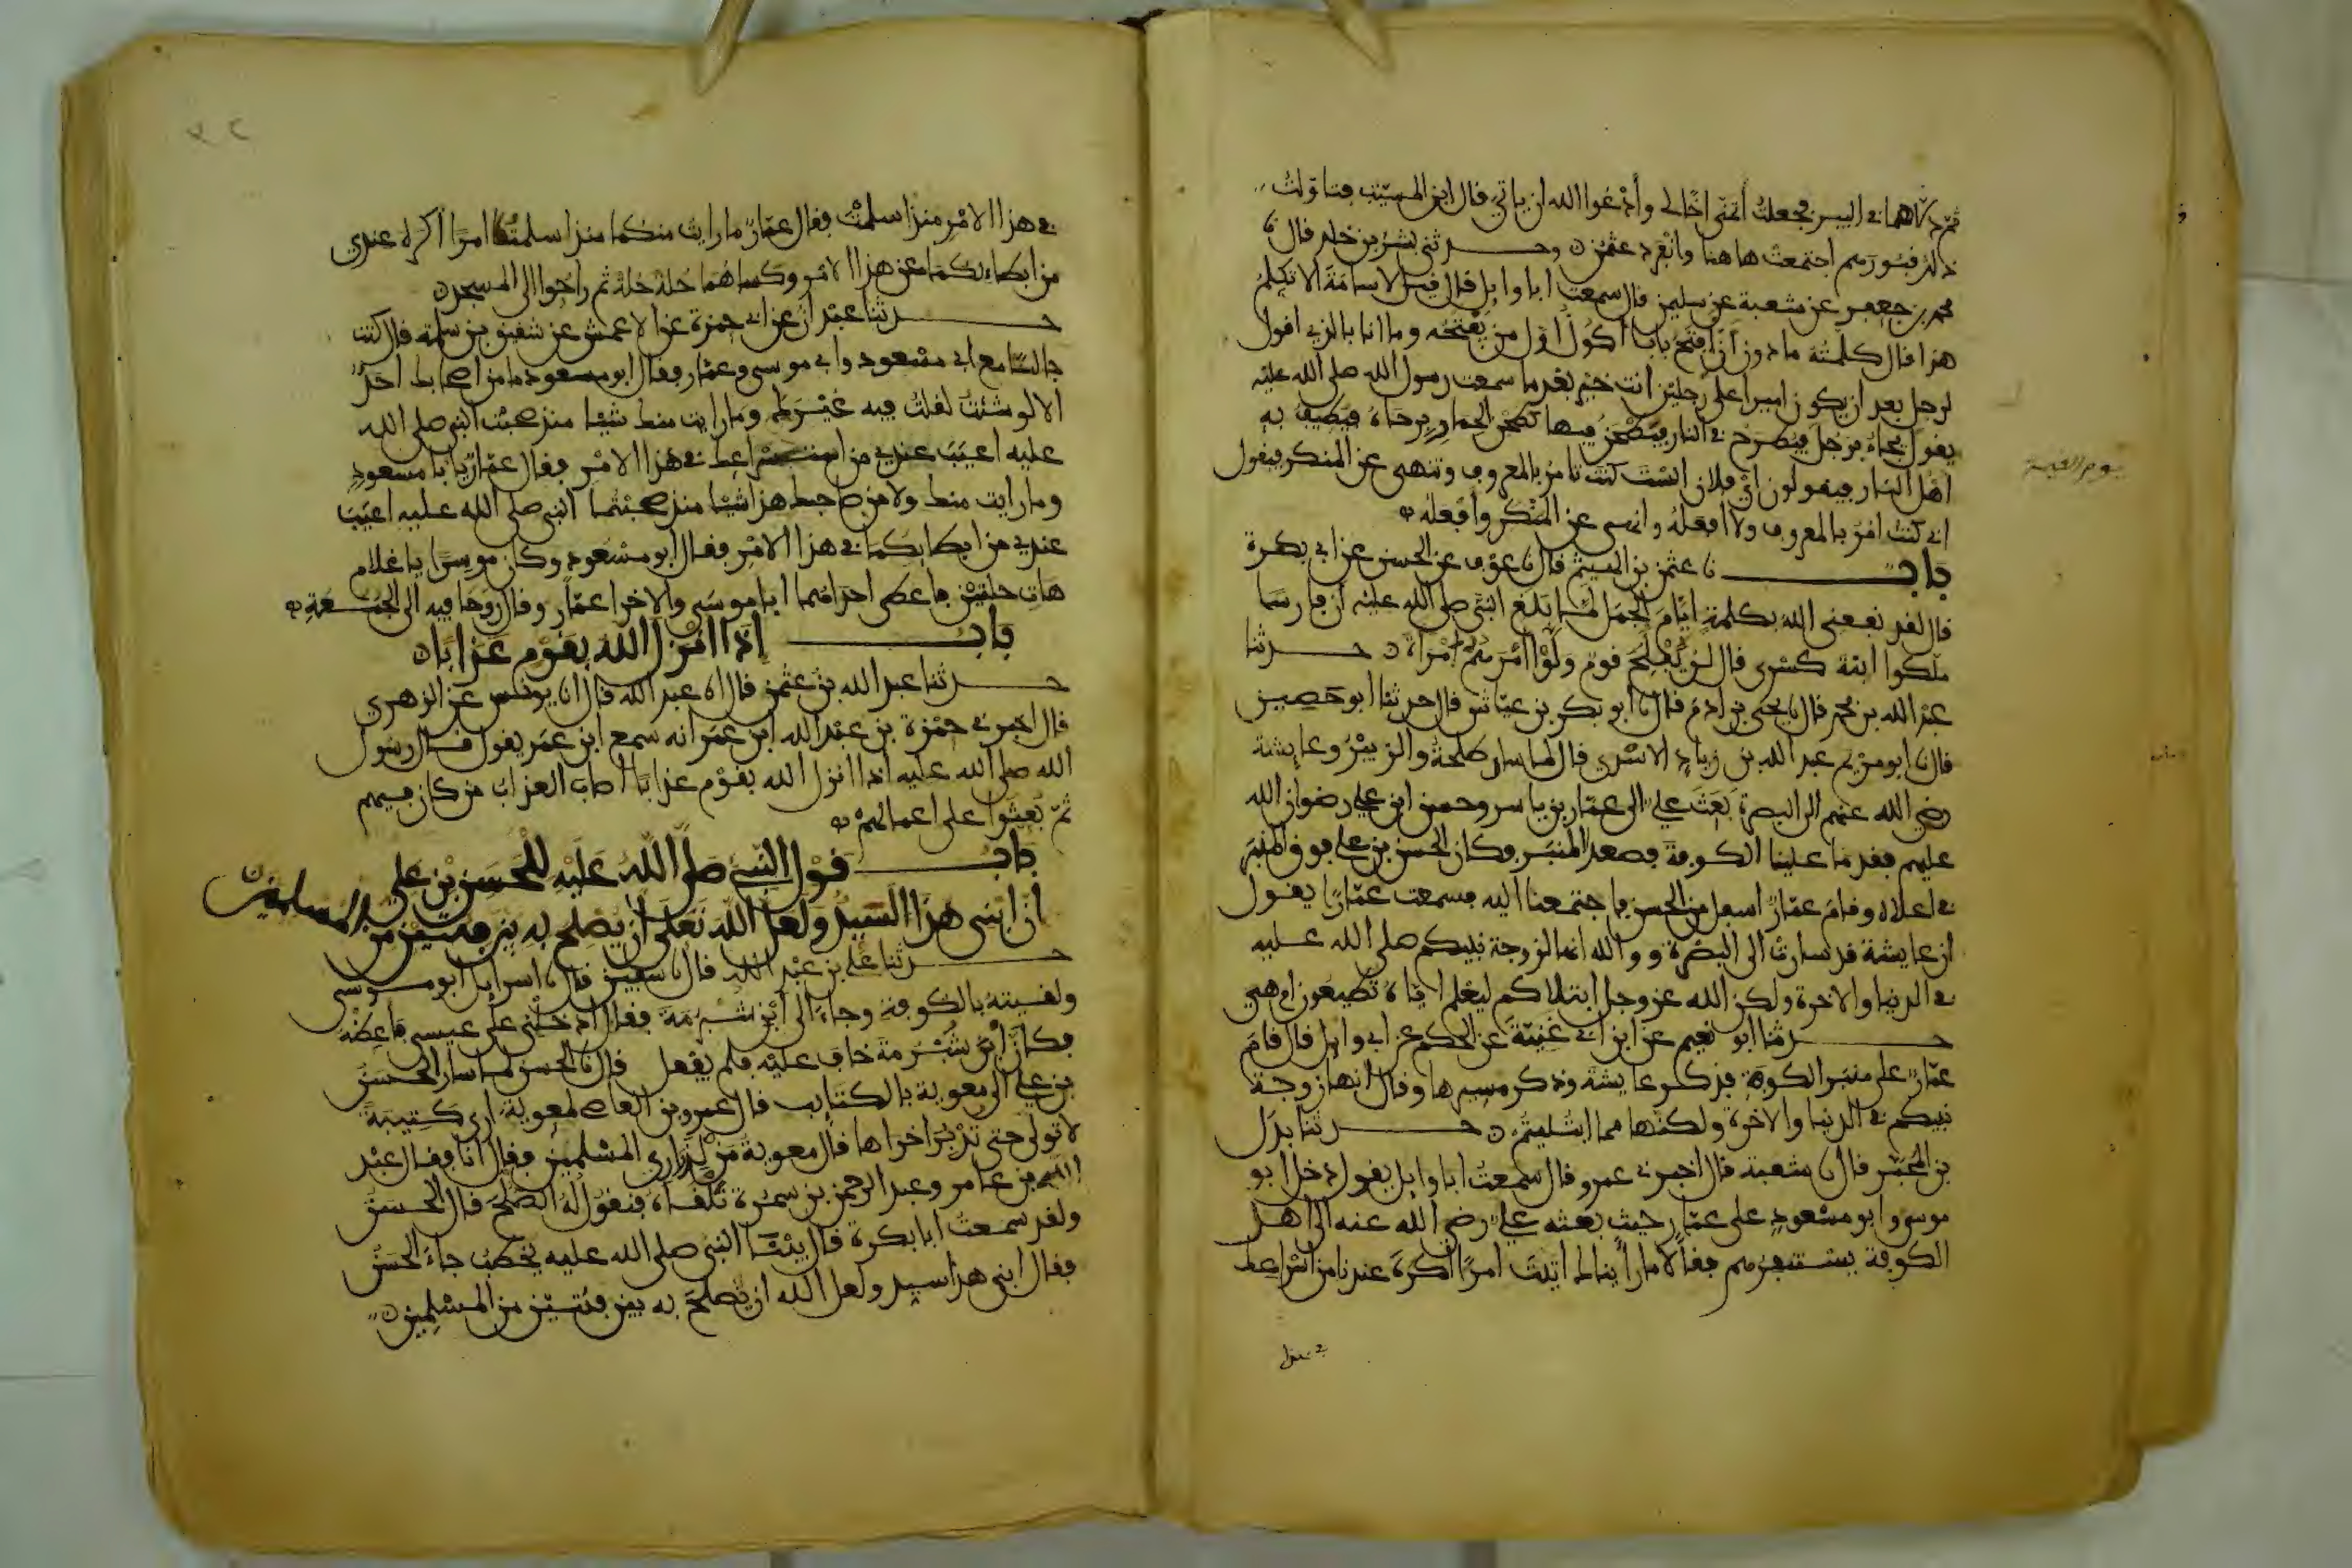 ثم دلاهما في البير فجعلت أتمنى أخا لي وأدعوا الله ان ياتي قال ابن المسيب فتاولت
ذلك قبورهم اجتمعت هاهنا وانفرد عثمن وحدثني بشر بن خلد قال نا
محمد بن جعفر عن شعبة عن سليمن قال سمعت ابا وايل قال قيل لاسامة الا تكلم
هذا قال كلمته ما دون أن افتح بابا أكون أول من يفتحه وما انا بالذي اقول
لرجل بعد ان يكون اميرا على رجلين انت خير بعد ما سمعت رسول الله صلى الله عليه
يقول يجاء برجل فيطرح في النار فيطحن فيها كطحن الحمار برحاه فيطيف به
اهل النار فيقولون اي فلان الست كنت تامر بالمعروف وتنهى عن المنكر فيقول
اني كنت امر بالمعروف ولا افعله وانهى عن المنكر وافعله
باب نا عثمن بن الهيثم قال نا عوف عن الحسن عن ابي بكرة
قال لقد نفعني الله بكلمة ايام الجمل لما بلغ النبي صلى الله عليه ان فارسا
ملكوا ابنة كسرى قال لن يفلح قوم ولوا امرهم امراة حدثنا
عبد الله بن محمد قال نا يحيى بن ادم قال نا ابو بكر بن عياش قال حدثنا ابو حصين
قال نا ابو مريم عبد الله بن زياد الاسدي قال لما سار طلحة والزبير وعايشة
رضي الله عنهم الى البصرة بعث علي الى عمار بن ياسر وحسن ابن علي رضوان الله
عليهم فقدما علينا الكوفة فصعد المنبر فكان الحسن بن علي فوق المنبر
في اعلاه وقام عمار اسفل من الحسن فاجتمعنا اليه فسمعت عمارا يقول
ان عايشة قد سارت الى البصرة و والله انها لزوجة نبيكم صلى الله عليه
في الدنيا والاخرة ولكن الله عز وجل ابتلاكم ليعلم اياه تطيعون ام هي
حدثنا ابو نعيم عن ابن ابي غنية عن الحكم عن ابي وايل قال قام
عمار على منبر الكوفة فذكر عايشة وذكر مسيرها وقال انها زوجة
نبيكم في الدنيا والاخرة ولكنها مما ابتليتم حدثنا بدل
بن المحبر قال نا شعبة قال اخبرني عمرو قال سمعت ابا وايل يقول دخل ابو
موسى وابو مسعود على عمار حيث بعثه علي رضي الله عنه الى اهل
الكوفة يستنفرهم فقالا ما رايناك اتيت امرا اكره عندنا من اسراعك
يوم القيمة
في هذا الامر منذ اسلمت فقال عمار ما رايت منكما منذ اسلمتما امرا اكره عندي
من ابطايكما عن هذا الامر وكساهما حلة حلة ثم راحوا الى المسجد
حدثنا عبدان عن ابي حمزة عن الاعمش عن شقيق بن سلمة قال كنت
جالسا مع ابي مسعود وابي موسى وعمار فقال ابو مسعود ما من اصحابك احد
الا لو شئت لقلت فيه غيرك وما رايت منك شيئا منذ صحبت النبي صلى الله
عليه اعيب عندي من اسراعك في هذا الامر فقال عمار يا با مسعود
وما رايت منك ولا من صاحبك هذا شيئا منذ صحبتما النبي صلى الله عليه اعيب
عندي من ابطايكما في هذا الامر فقال ابو مسعود وكان موسرا يا غلام
هات حلتين فاعطى احداهما ابا موسى والاخرا عمار وقال روحا فيه الى الجمعة
باب إذا انزل الله بقوم عذابا
حدثنا عبد الله بن عثمن قال انا عبد الله قال انا يونس عن الزهري
قال اخبرني حمزة بن عبد الله ابن عمر انه سمع ابن عمر يقول قال رسول
الله صلى الله عليه اذا انزل الله بقوم عذابا اصاب العذاب من كان فيهم
ثم بعثوا على اعمالهم
باب قول النبي صلى الله عليه للحسن بن علي
ان ابني هذا السيد ولعل الله تعلى أن يصلح به بين فئتين من المسلمين
حدثنا علي بن عبد الله قال نا سفين قال نا اسرايل ابو موسى
ولقيته بالكوفة وجاء الى ابن شبرمة فقال ادخلني على عيسى فاعظه
فكان ابن شبرمة خاف عليه فلم يفعل قال نا الحسن لما سار الحسن
بن علي الى معوية بالكتايب قال عمرو بن العاص لمعوية ارى كتيبة
لا تولى حتى تدبر اخراها قال معوية من لذراري المسلمين فقال انا فقال عبد
الله بن عامر وعبد الرحمن بن سمرة تلقاه فنقول له الصلح قال الحسن
ولقد سمعت ابا بكرة قال بينا النبي صلى الله عليه يخطب جاء الحسن
فقال ابني هذا سيد ولعل الله ان يصلح به بين فئتين من المسلمين